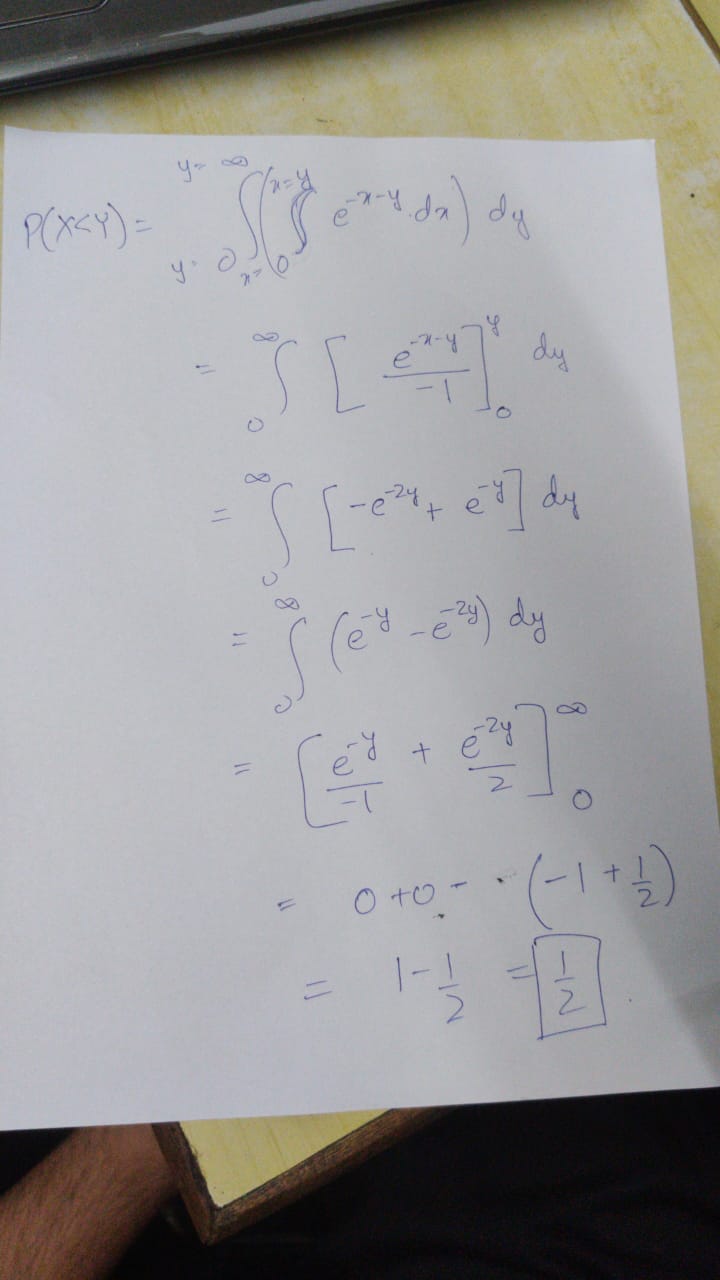 P(X<Y) = ∫_{y=0}^{y=∞} ( ∫_{x=0}^{x=y} e^{-x-y}.dx ) dy
= ∫_0^∞ [ e^{-x-y}/-1 ]_0^y dy
= ∫_0^∞ [ -e^{-2y} + e^{-y} ] dy
= ∫_0^∞ (e^{-y} - e^{-2y}) dy
= [ e^{-y}/-1 + e^{-2y}/2 ]_0^∞
= 0 + 0 - (-1 + 1/2)
= 1 - 1/2 = 1/2